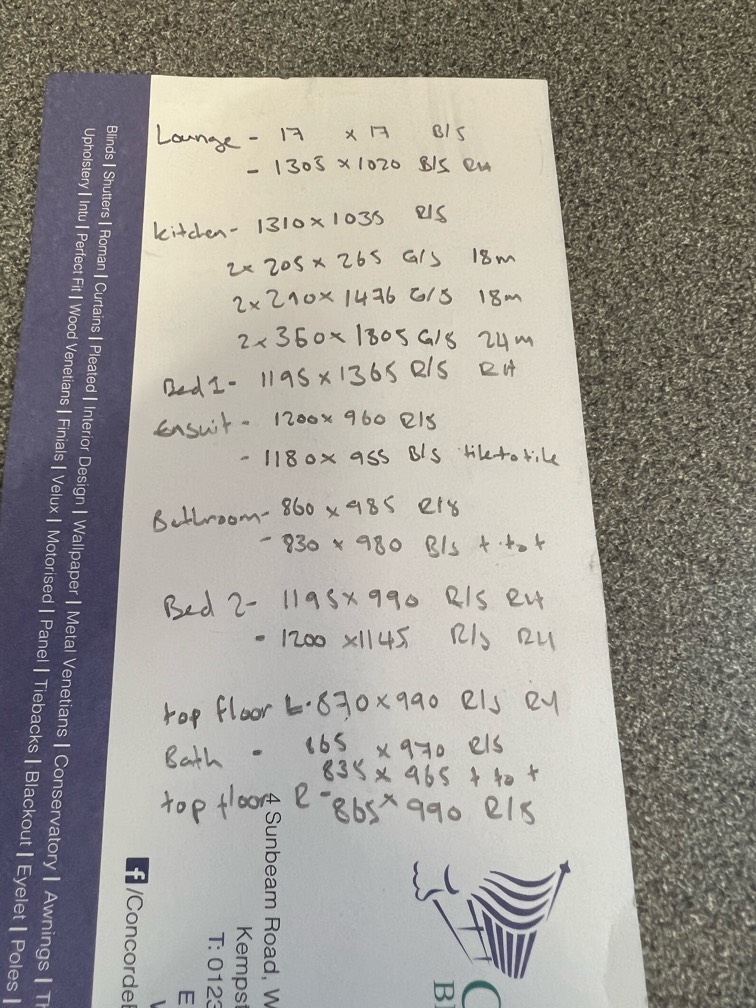 Lounge - 17 x 17 B/S
- 1305 x 1020 B/S RH
kitchen - 1310 x 1035 R/S
2x 205 x 265 G/S 18m
2 x 290 x 1476 G/S 18m
2 x 360 x 1805 G/S 24m
Bed 1 - 1195 x 1365 R/S RH
Ensuit - 1200 x 960 R/S
- 1180 x 955 B/S tile to tile
Bathroom - 860 x 985 R/S
- 830 x 980 B/S t to t
Bed 2 - 1195 x 990 R/S RH
- 1200 x 1145 R/S RH
top floor L - 870 x 990 R/S RH
Bath - 865 x 970 R/S
835 x 965 t to t
top floor R - 865 x 990 R/S
Blinds | Shutters | Roman | Curtains | Pleated | Interior Design | Wallpaper | Metal Venetians | Conservatory | Awnings |
Upholstery | Intu | Perfect Fit | Wood Venetians | Finials | Velux | Motorised | Panel | Tiebacks | Blackout | Eyelet | Poles |
f /Concorde
4 Sunbeam Road, W
Kempst
T: 0123
E
C
Bl